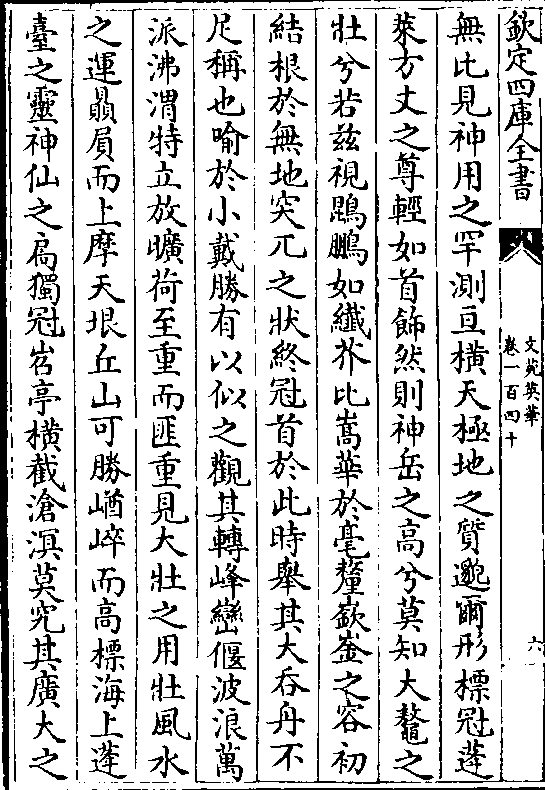 欽定四庫全書
文苑英華
卷一百四十
六
無比見神用之罕測亘橫天極地之質邈爾形標冠蓬
萊方丈之尊輕如首飾然則神岳之高兮莫知大鼇之
壯兮若兹視鵾鵬如纖芥比嵩華於毫釐嶔崟之容初
結根於無地突兀之狀終冠首於此時舉其大吞舟不
足稱也喻於小戴勝有以似之觀其轉峰巒偃波浪萬
派沸渭特立放曠荷至重而匪重見大壯之用壯風水
之運贔屓而上摩天垠丘山可勝崷崪而高標海上蓬
臺之靈神仙之扃獨冠岧亭橫截滄溟莫究其廣大之